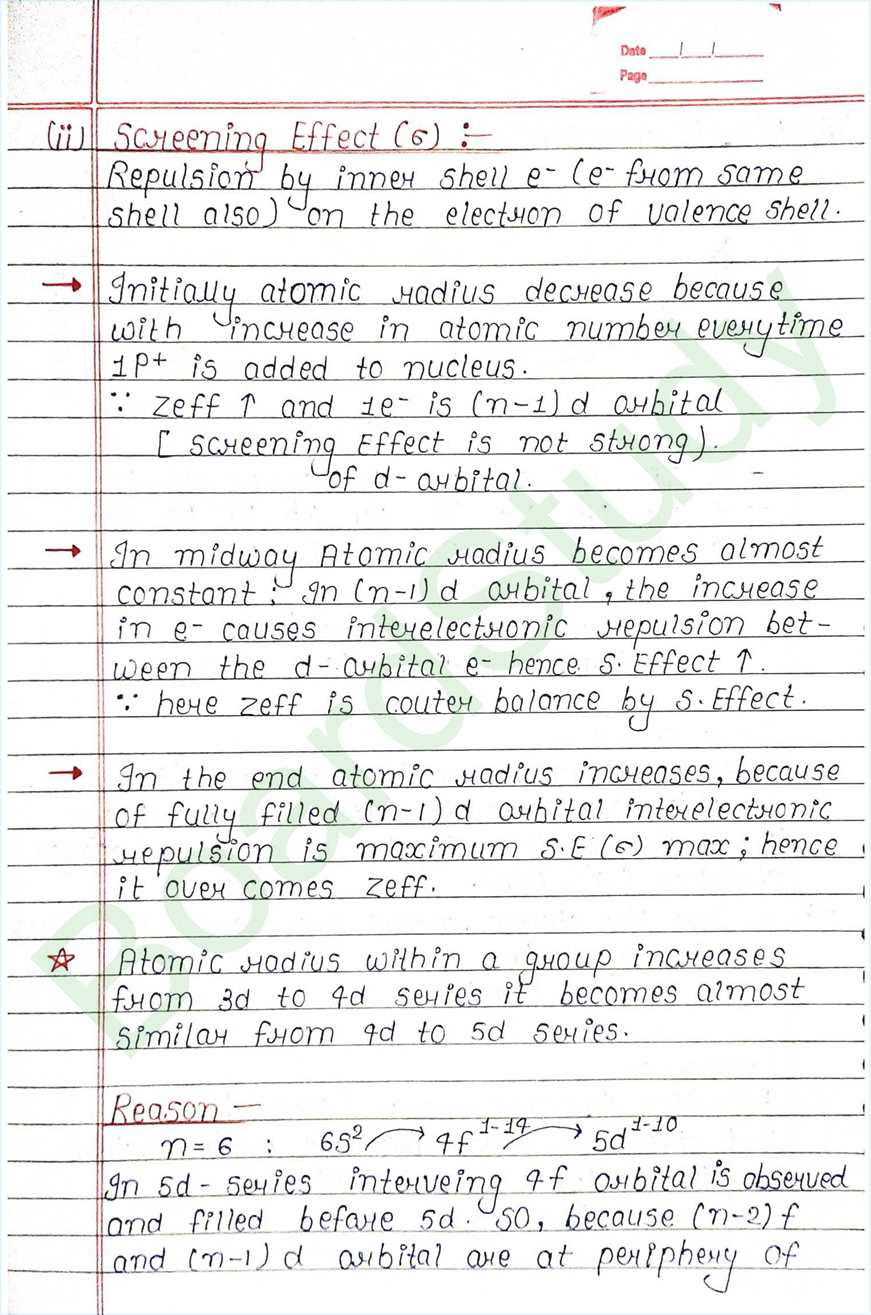 Date / /
Page
(ii) Screening Effect (σ) :-
Repulsion by inner shell e- (e- from same
shell also) on the electron of valence shell.
→ Initially atomic radius decrease because
with increase in atomic number everytime
1P+ is added to nucleus.
∵ Zeff ↑ and 1e- is (n-1) d orbital
[ Screening Effect is not strong).
of d-orbital.
→ In midway Atomic radius becomes almost
constant : In (n-1) d orbital, the increase
in e- causes interelectronic repulsion bet-
ween the d-orbital e- hence S. Effect ↑.
∵ here Zeff is couter balance by S. Effect.
→ In the end atomic radius increases, because
of fully filled (n-1) d orbital interelectronic
repulsion is maximum S.E (σ) max ; hence
it over comes Zeff.
☆ Atomic radius within a group increases
from 3d to 4d series it becomes almost
similar from 4d to 5d series.
Reason -
n = 6 : 6S² → 4f¹⁻¹⁴ → 5d¹⁻¹⁰
In 5d-series interveing 4f orbital is observed
and filled before 5d. SO, because (n-2) f
and (n-1) d orbital are at periphery of
BoardStudy